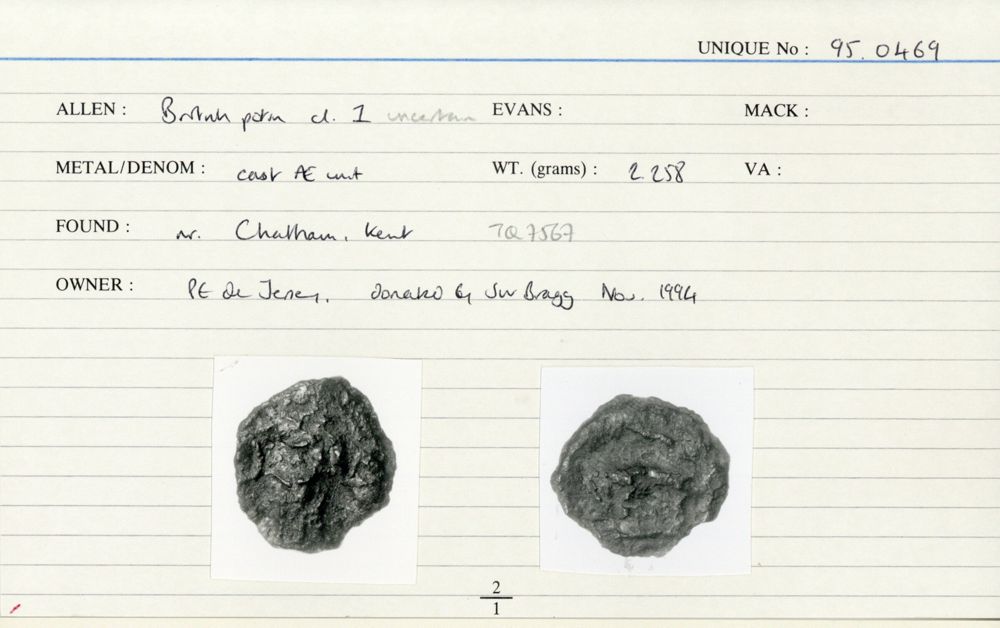 UNIQUE No : 95.0469
ALLEN : British potin cl. 1 uncertain EVANS : MACK :
METAL/DENOM : cast Æ unit WT. (grams) : 2.258 VA :
FOUND : nr. Chatham, Kent TQ7567
OWNER : PE de Jersey, donated by JW Bragg Nov. 1994
2
1